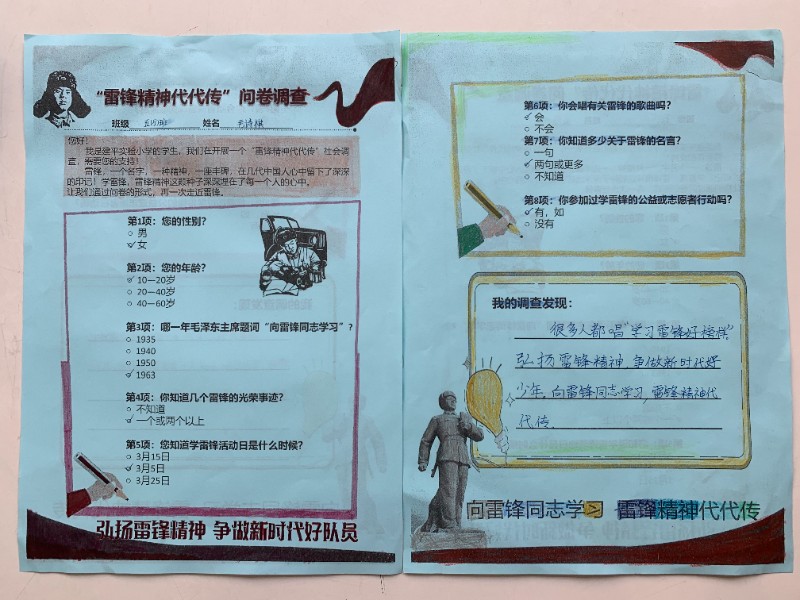 “雷锋精神代代传”问卷调查
班级 姓名
您好！
我是建平实验小学的学生，我们在开展一个“雷锋精神代代传”社会调
查，需要您的支持！
雷锋，一个名字，一种精神，一座丰碑，在几代中国人心中留下了深深
的印记！学雷锋，雷锋精神这颗种子深深埋在了每一个人的心中。
让我们通过问卷的形式，再一次走近雷锋。
第1项：您的性别？
男
女
第2项：您的年龄？
10—20岁
20—40岁
40—60岁
第3项：哪一年毛泽东主席题词“向雷锋同志学习”？
1935
1940
1950
1963
第4项：你知道几个雷锋的光荣事迹？
不知道
一个或两个以上
第5项：您知道学雷锋活动日是什么时候？
3月15日
3月5日
3月25日
弘扬雷锋精神 争做新时代好队员
第6项：你会唱有关雷锋的歌曲吗？
会
不会
第7项：你知道多少关于雷锋的名言？
一句
两句或更多
不知道
第8项：你参加过学雷锋的公益或志愿者行动吗？
有，如
没有
我的调查发现：
很多人都唱“学习雷锋好榜样”
弘扬雷锋精神，争做新时代好
少年，向雷锋同志学习，雷锋精神代
代传。
向雷锋同志学习 雷锋精神代代传